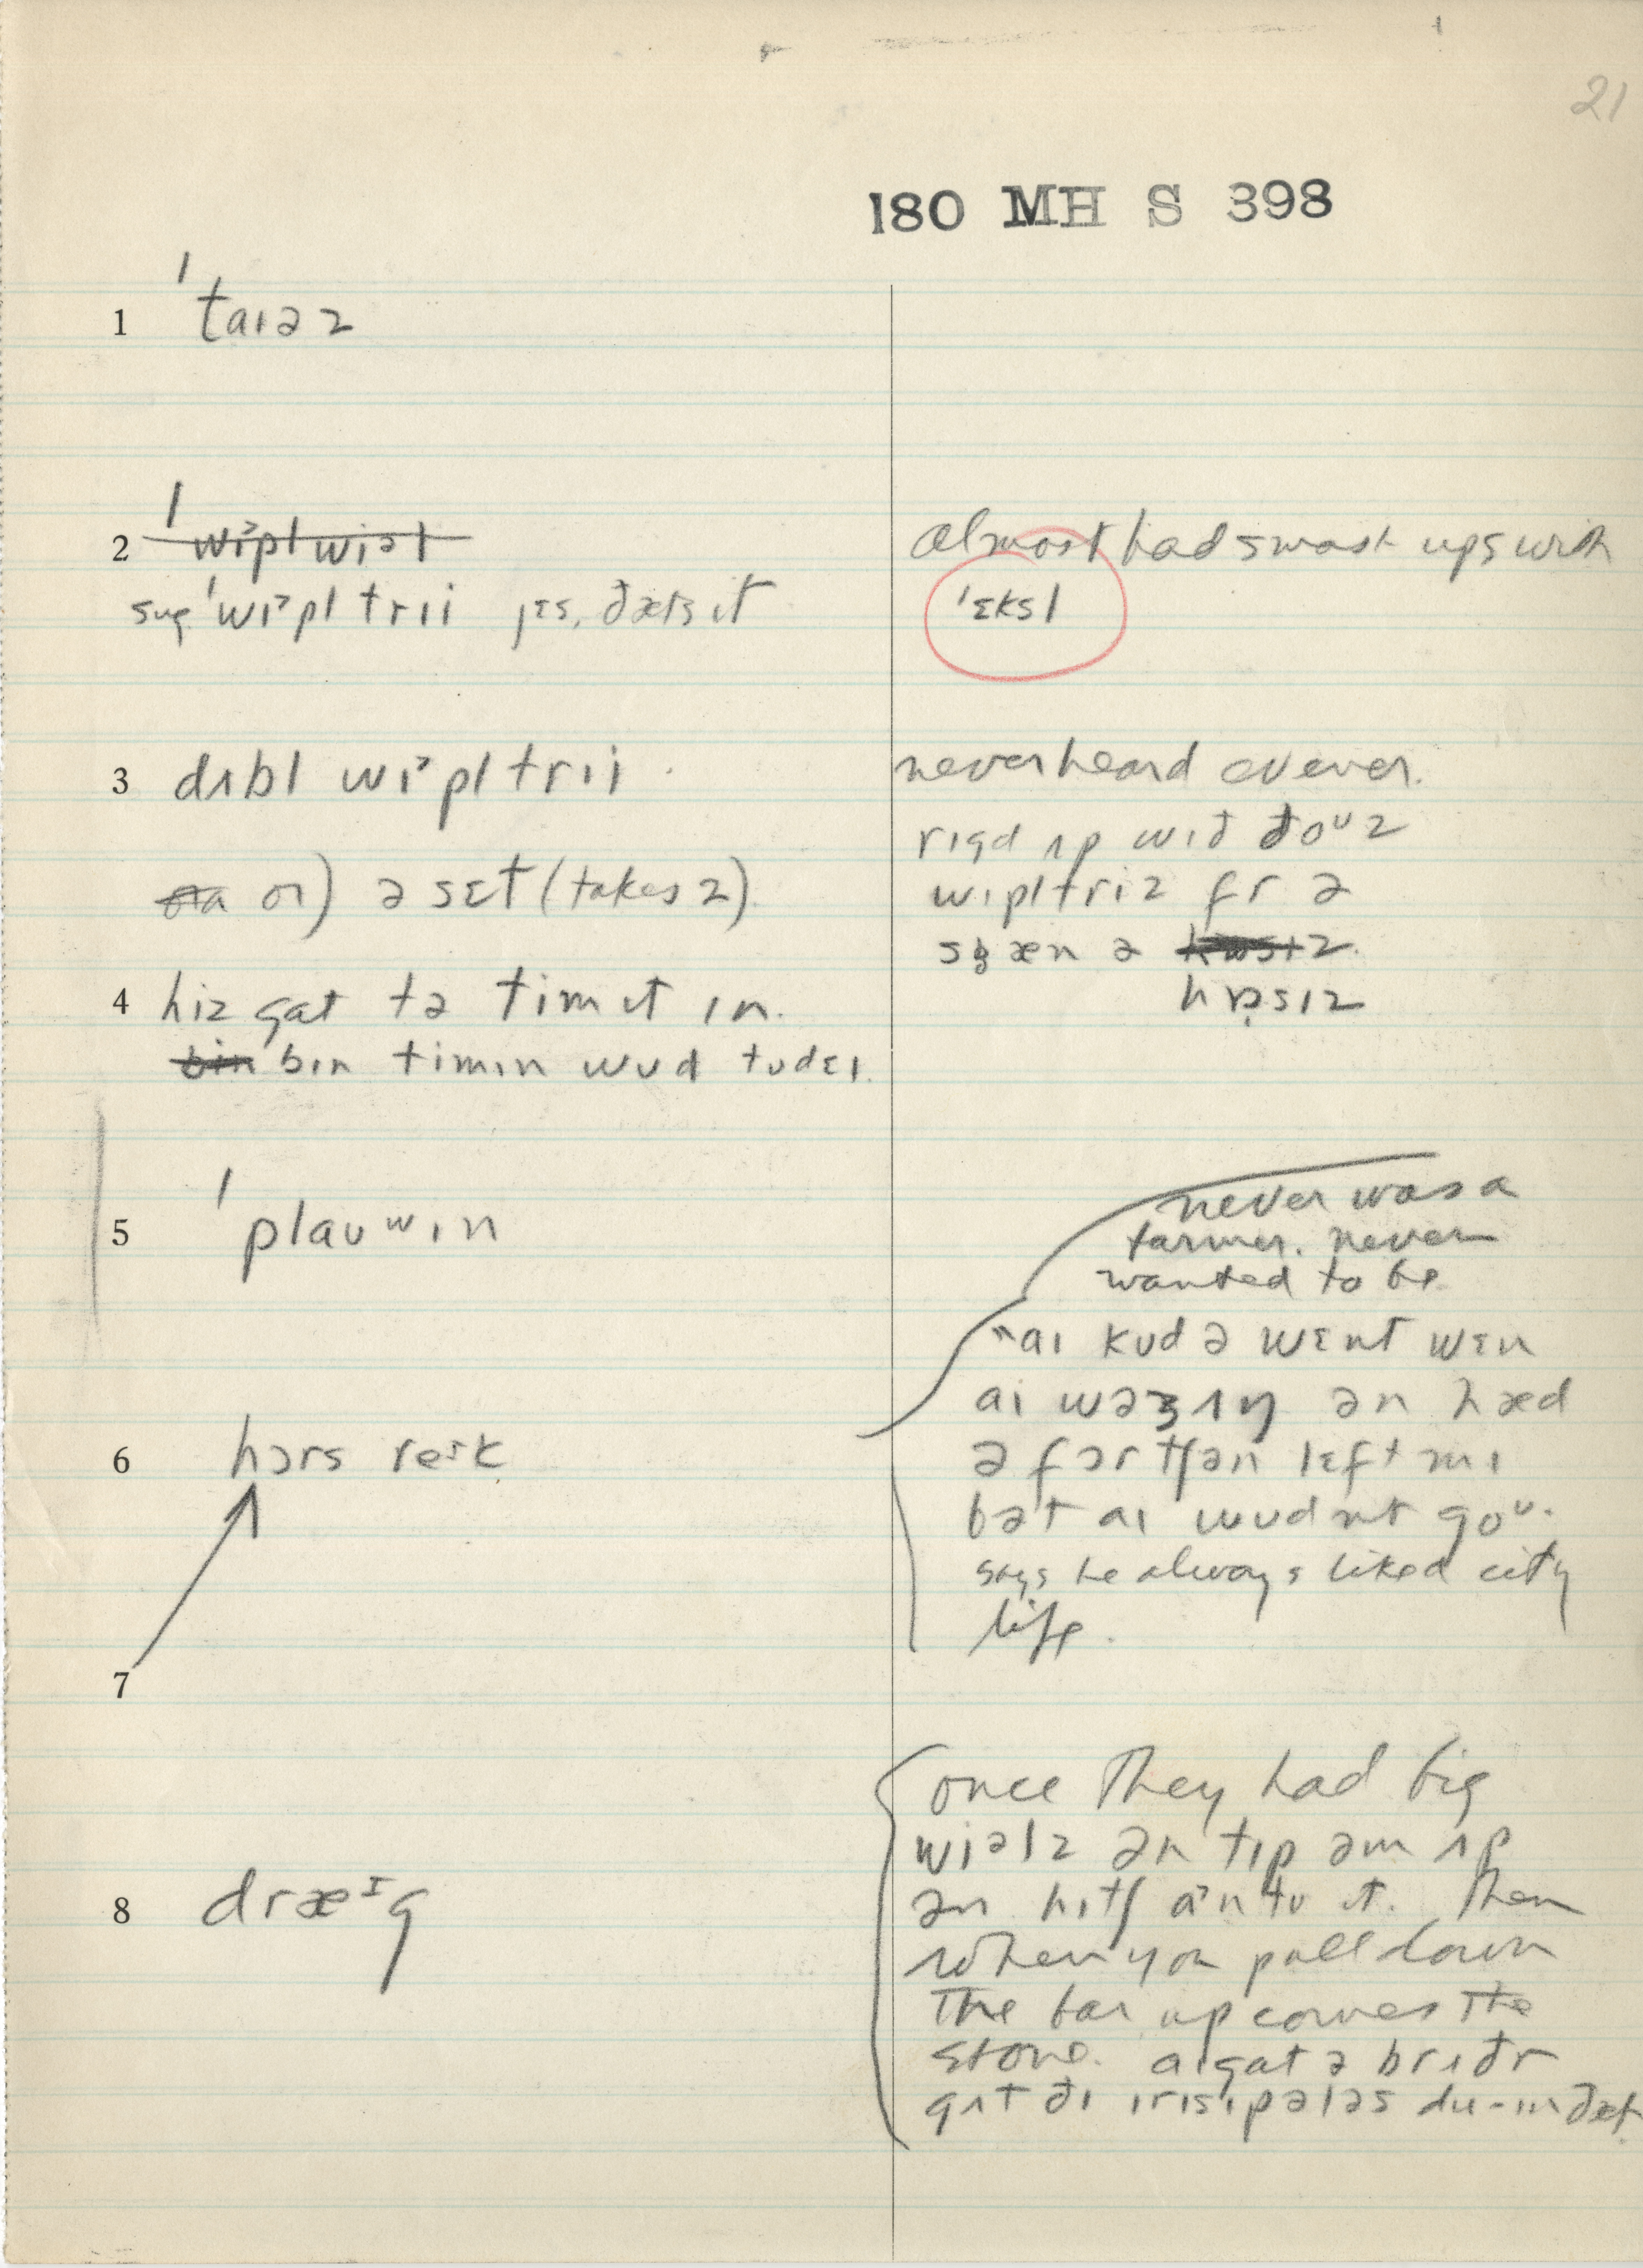 21
180 MH S 398
1 ˈtaɪəz
2 ˈwɪˀplwiəl
sug. ˈwɪˀpl trii jɛs, ðæts ɪt
almost had smash ups with
ˈɛksl
3 dʌbl wɪˀpl trii
or) ə sɛt (takes 2)
never heard evener.
rɪgd ʌp wɪð ðoᵘz
wɪpltriz fr ə
spæn ə
hɒsɪz
4 hiz gat tə tim ɪt ɪn.
bɪn timɪn wud tudɛɪ.
5 ˈplauʷɪn
never was a
farmer. never
wanted to be
"aɪ kud ə wɛnt wɛn
aɪ wəz ʌŋ ən hæd
ə fɔrtʃən lɛft mi
bət aɪ wudnt goᵘ.
says he always liked city
life.
6 hɔrs reɪk
7
8 dræᶦg
once they had big
wiəlz ən tɪp əm ʌp
ən hɪtʃ aˀntu ɪt. Then
when you pull down
the bar up comes the
stone. aɪ gat ə brʌðr
gʌt ðɪ ɪrɪsɪpələs du-ɪn ðæt.